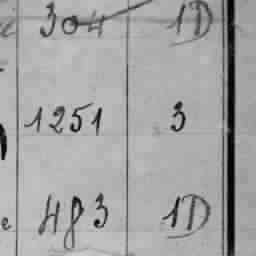 304 1D
1251 3
483 1D